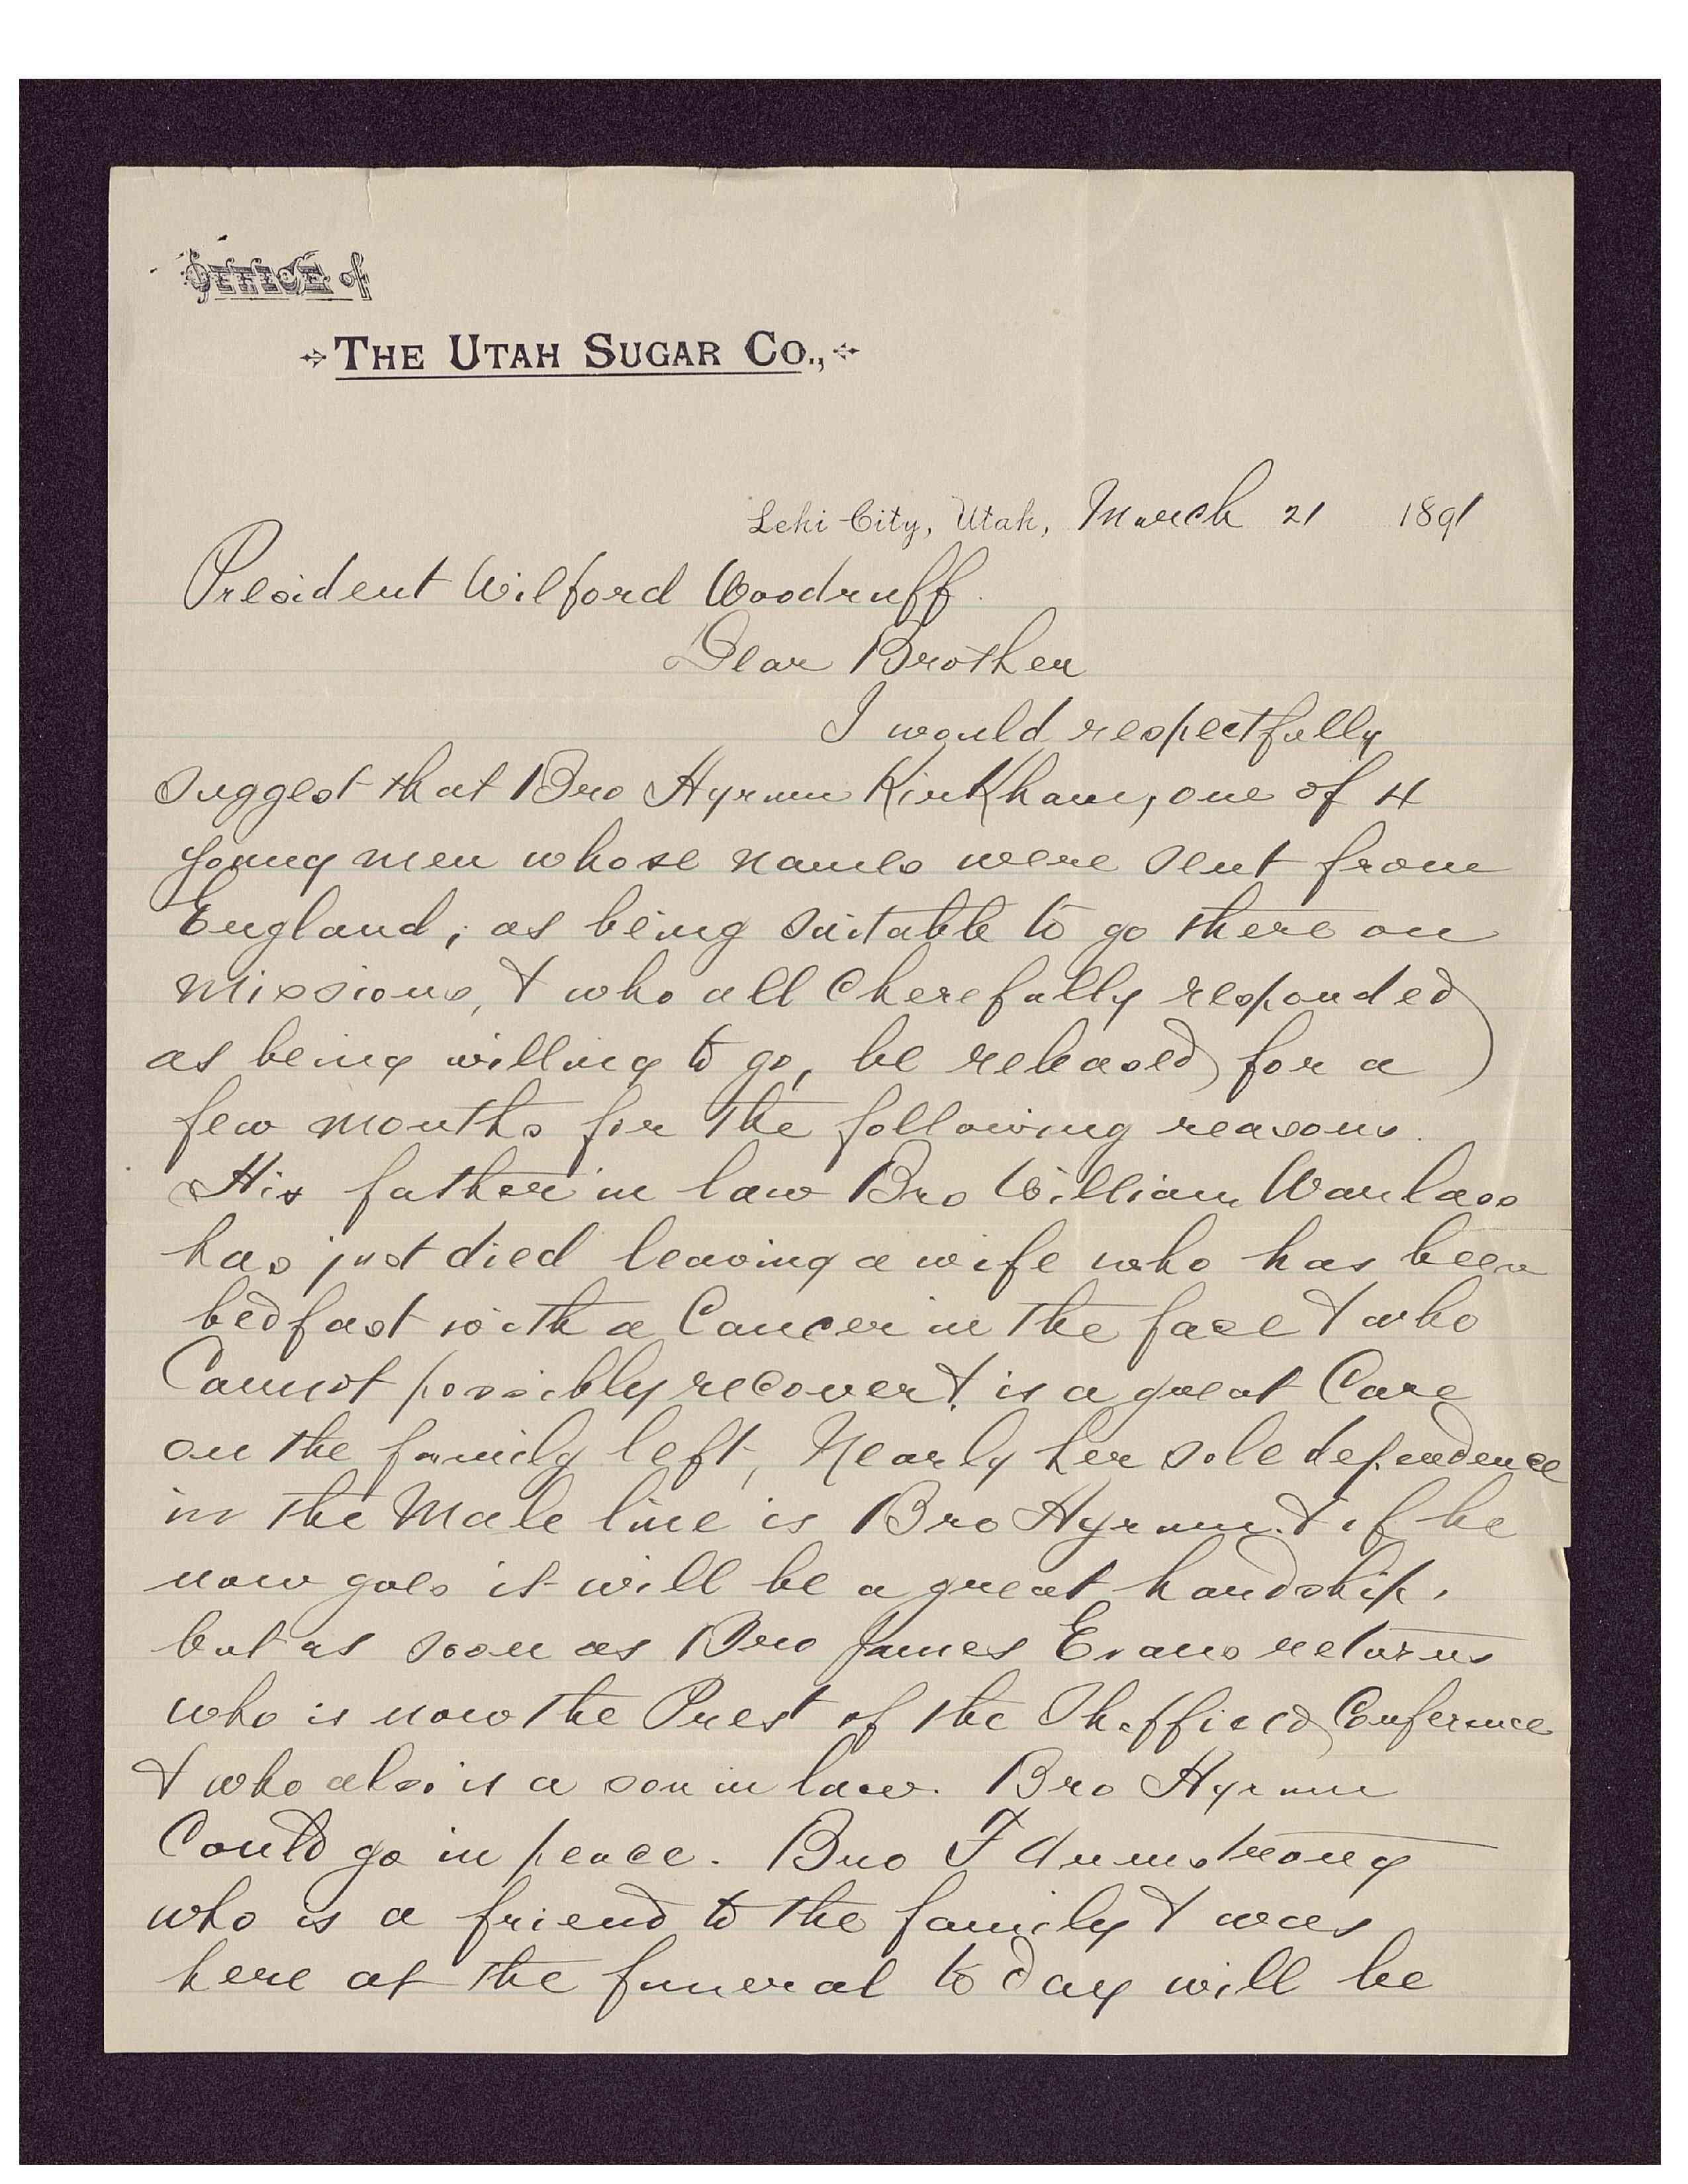 OFFICE of
THE UTAH SUGAR CO.,
Lehi City, Utah, March 21 1891
President Wilford Woodruff.
Dear Brother
I would respectfully
suggest that Bro Hyrum Kirkham, one of 4
young men whose names were sent from
England, as being suitable to go there on
missions, & who all cherefully responded
as being willing to go, be released for a
few months for the following reasons.
His father in law Bro William Wanlass
has just died leaving a wife who has been
bedfast with a Cancer in the face & who
Cannot possibly recover & is a great Care
on the family left, Nearly her sole dependence
in the Male line is Bro Hyrum. & if he
now goes it will be a great hardship,
but as soon as Bro James Evans returns
who is now the Prest of the Sheffield Conference
& who also is a son in law. Bro Hyrum
Could go in peace. Bro F Armstrong
who is a friend to the family & was
here at the funeral to day will be